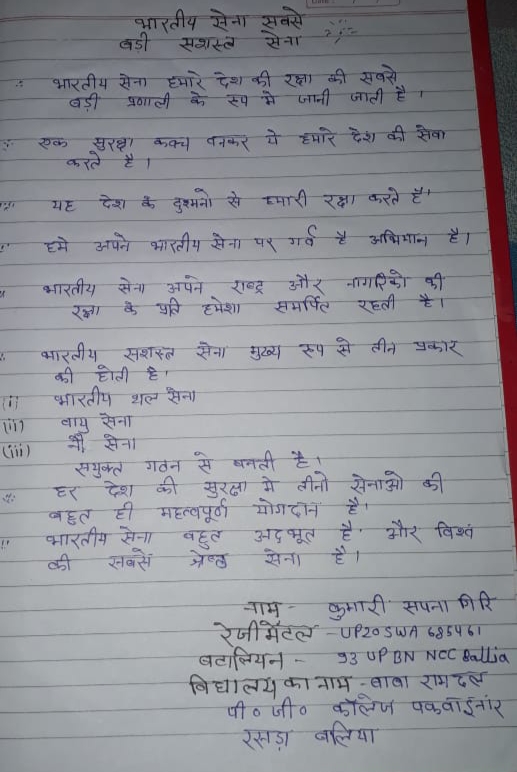 भारतीय सेना सबसे
बडी सशस्त सेना
भारतीय सेना हमारे देश की रक्षा की सबसे
बड़ी प्रणाली के रूप मे जानी जाती है ।
एक सुरक्षा कवच बनकर ये हमारे देश की सेवा
करते है ।
यह देश के दुश्मनो से हमारी रक्षा करते है'
हमे अपने भारतीय सेना पर गर्व है अभिमान है।
भारतीय सेना अपने राष्ट्र और नागरिको की
रक्षा के प्रति हमेशा समर्पित रहती है।
भारतीय सशस्त सेना मुख्य रूप से तीन प्रकार
की होती है'
(i) भारतीय थल सेना
(ii) वायु सेना
(iii) नौ सेना
सयुक्त गठन से बनती है।
हर देश की सुरक्षा मे तीनो सेनाओ की
बहुत ही महत्वपूर्ण योगदान है'
भारतीय सेना बहुत अदभूत है' और विश्व
की सबसे श्रेष्ठ सेना है।
नाम - कुमारी सपना गिरि
रेजीमेंटल - UP20SWA685461
बटालियन - 93 UP BN NCC Ballia
विधालय का नाम - बाबा रामदल
पी० जी० कॉलेज पकवाईनार
रसड़ा बलिया